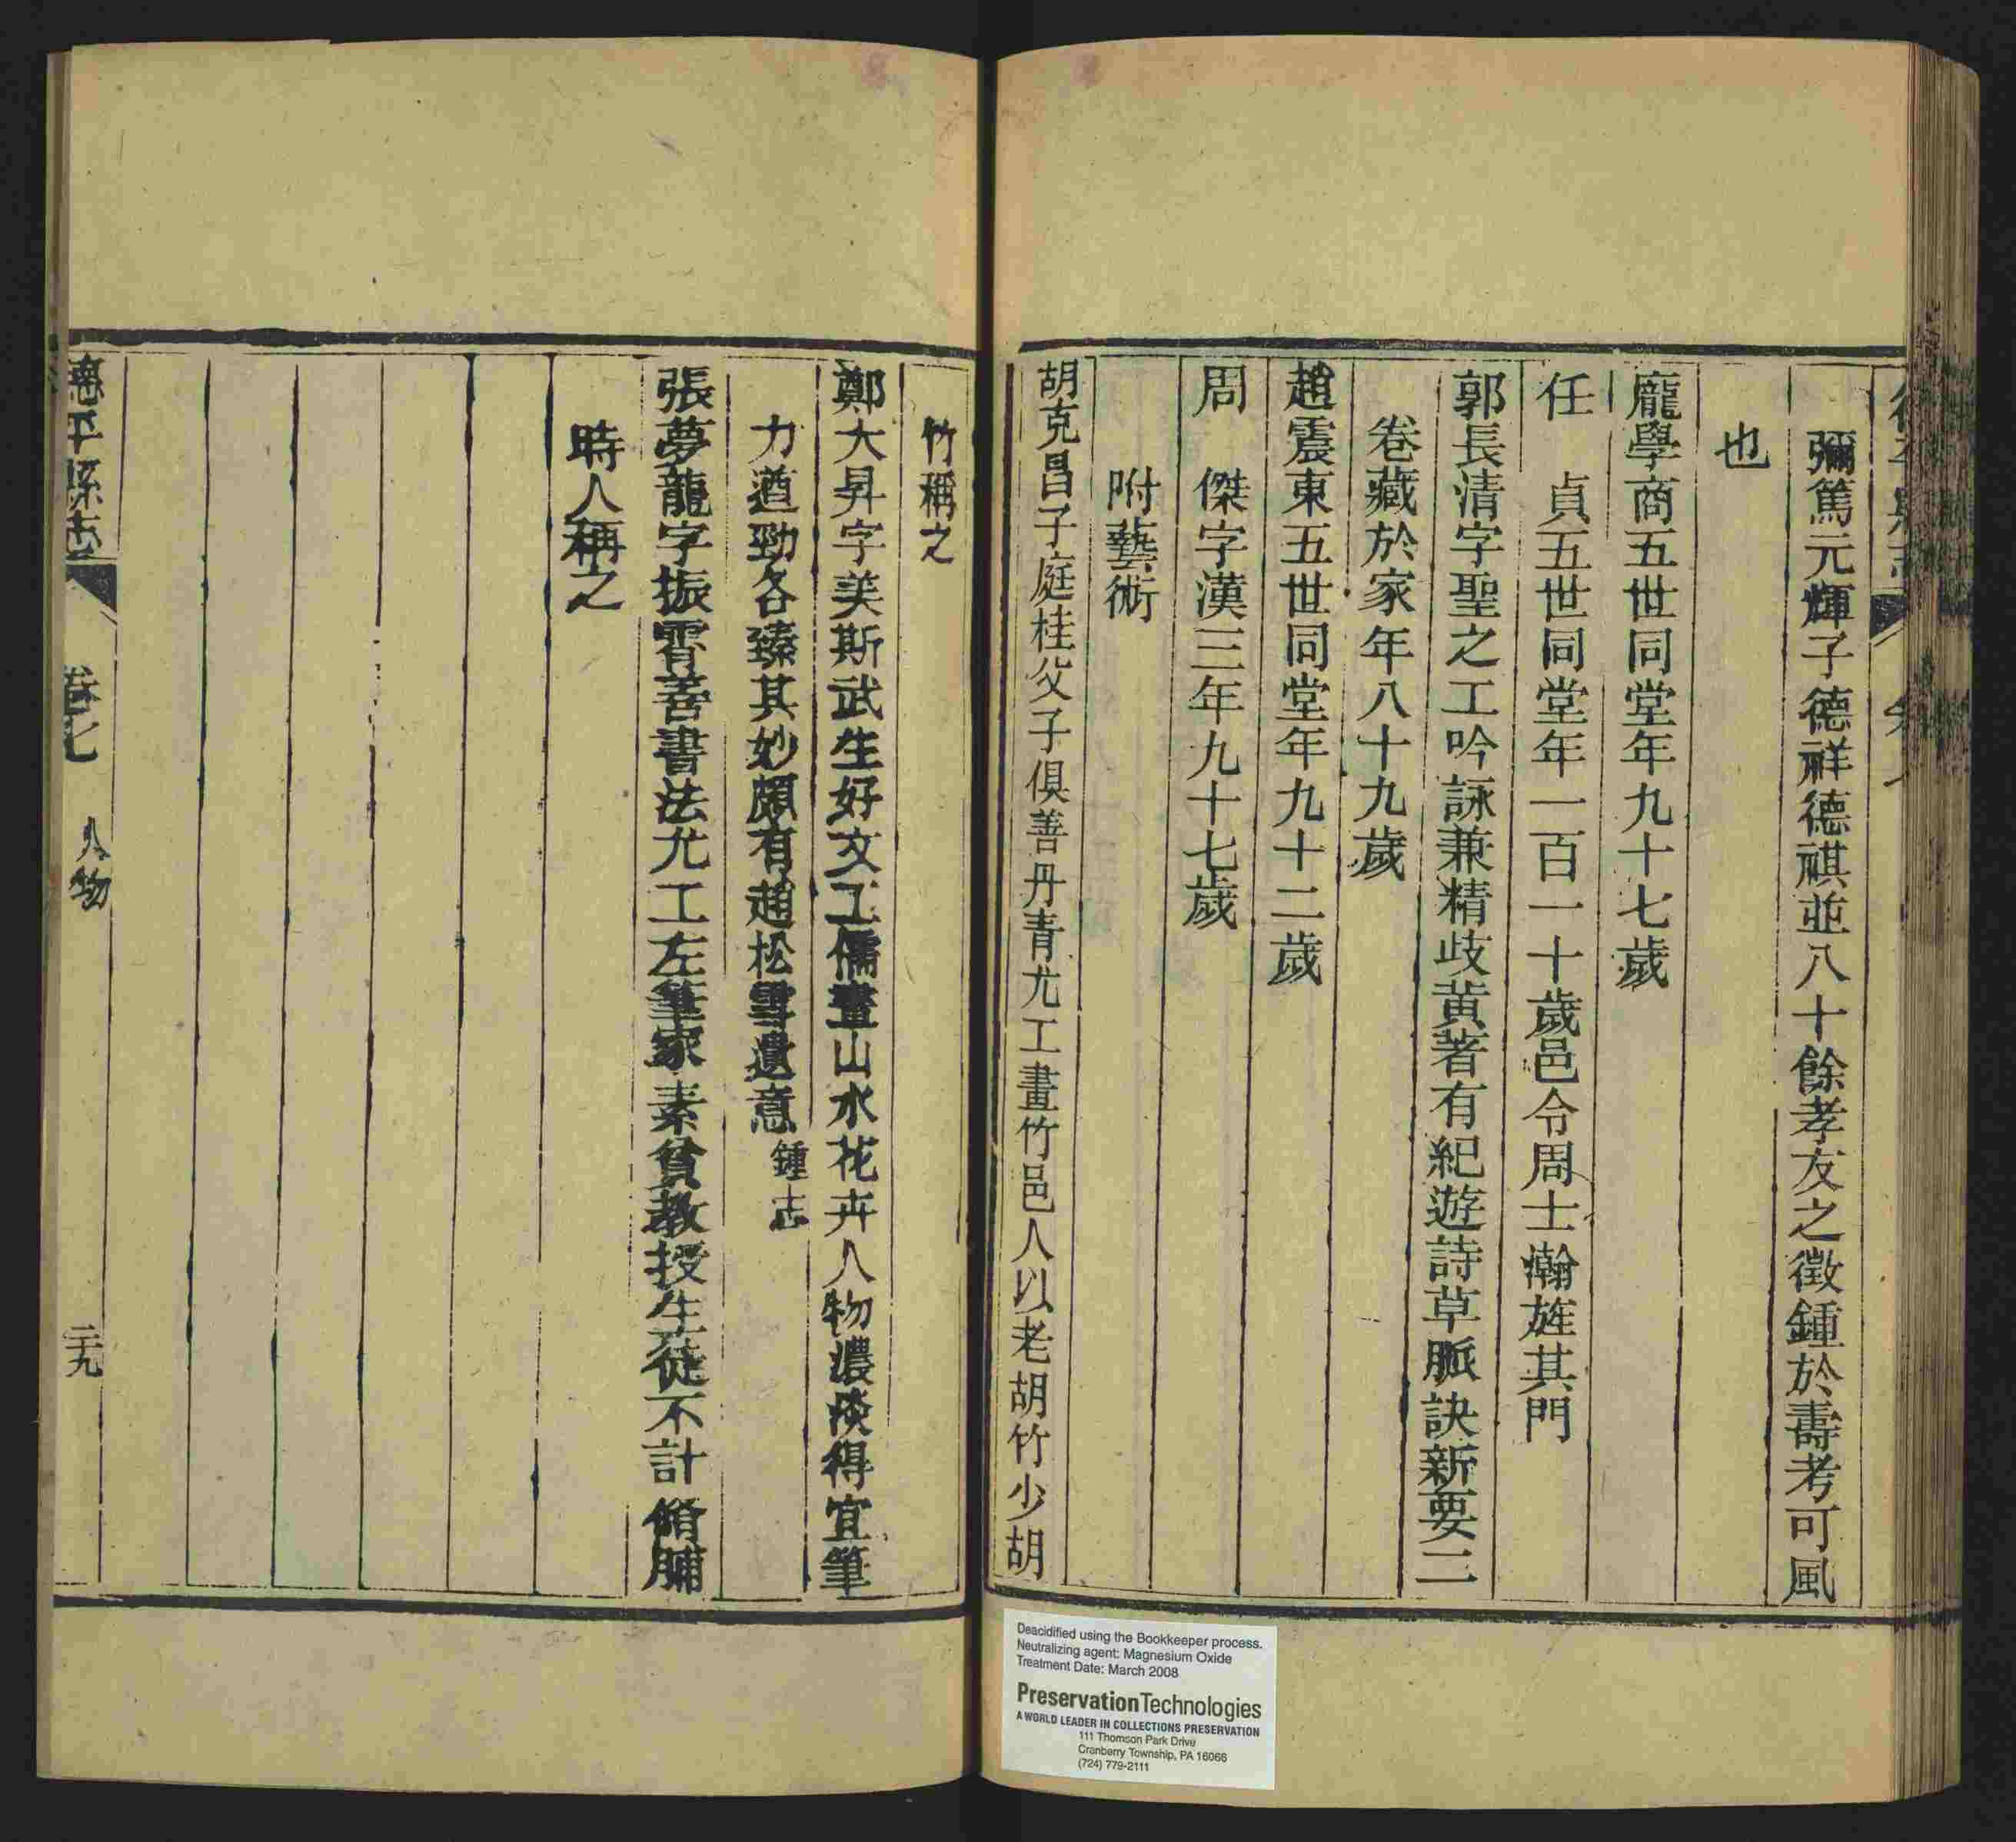 彌篤元輝子德祥德祺並八十餘孝友之徵鍾於壽考可風
也
龐學商五世同堂年九十七歲
任　貞五世同堂年一百一十歲邑令周士瀚旌其門
郭長清字聖之工吟詠兼精歧黃著有紀遊詩草脈訣新要二
卷藏於家年八十九歲
趙震東五世同堂年九十二歲
周　傑字漢三年九十七歲
附藝術
胡克昌子庭桂父子俱善丹青尤工畫竹邑人以老胡竹少胡
竹稱之
鄭大昇字美斯武生好文工儒畫山水花卉人物濃淡得宜筆
力遒勁各臻其妙頗有趙松雪遺意鍾志
張夢龍字振霄善書法尤工左筆家素貧教授生徒不計脩脯
時人稱之
德平縣志　卷七　人物　二十九
Deacidified using the Bookkeeper process.
Neutralizing agent: Magnesium Oxide
Treatment Date: March 2008
PreservationTechnologies
A WORLD LEADER IN COLLECTIONS PRESERVATION
111 Thomson Park Drive
Cranberry Township, PA 16066
(724) 779-2111